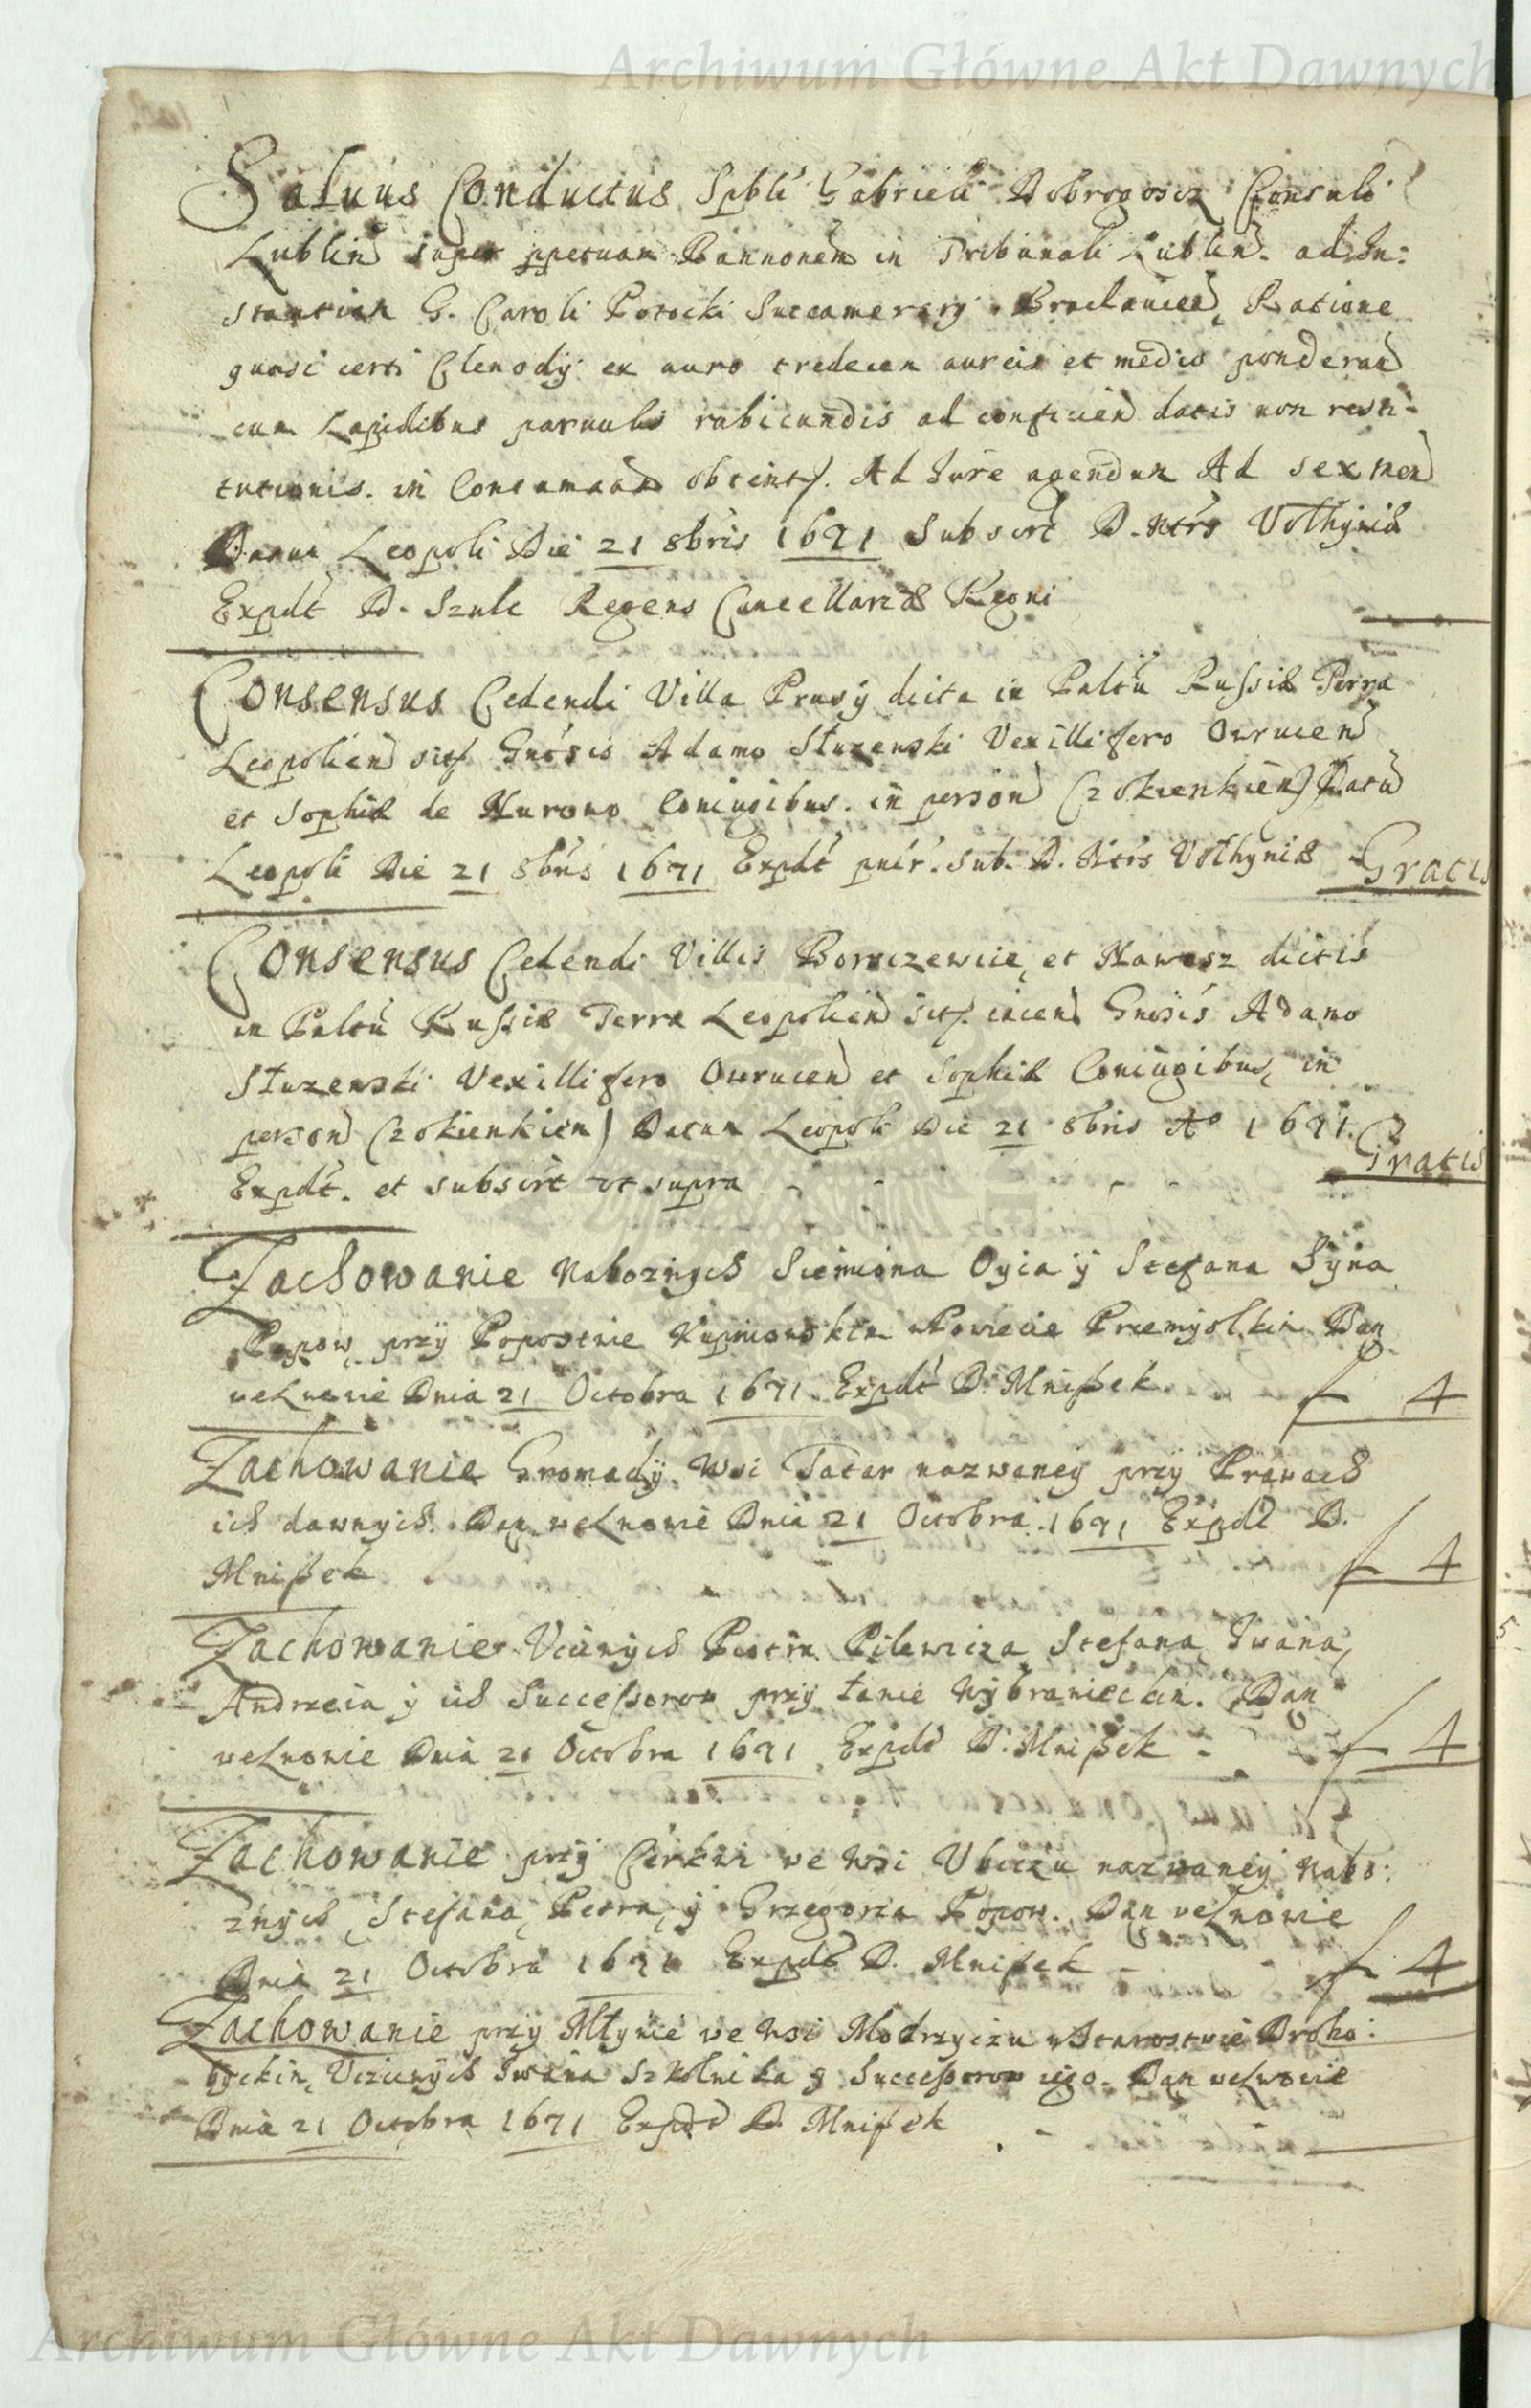 Archiwum Główne Akt Dawnych
Saluus Conductus Spbli Gabrieli Dobrogosz Consuli
Lublin super ppetuam Bannonem in Tribunali Lublin. ad In:
stantiam G. Caroli Potocki Succamerarij Braclauien, Ratione
quasi certi Clenodij ex auro tredecem aureis et medio ponderan
cum Lapidibus paruulis rubicundis ad conficien datis non resti-
tutionis. in Contumaciam obtent. Ad Iure agendum Ad sex men
Datum Leopoli Die 21 8bris 1691 Subscrt D. Ntrs Volhyniæ
Expdt D. Szulc Regens Cancellariæ Regni
Consensus Cedendi Villa Prusy dicta in Paltu Russiæ Terra
Leopolien sit Gnosis Adamo Słuzewski Vexillifero Owrucen
et Sophiæ de Coniugibus. in person Czokienkien Datu
Leopoli Die 21 8bris 1691 Expdt puir. sub. D. Ntrs Volhyniæ Gratis
Consensus Cedendi Villis Borszczewice, et Stawisz dictis
in Paltu Russiæ Terra Leopolien sit. incen Gnosis Adamo
Słuzewski Vexillifero Owrucen et Sophiæ Coniugibus, in
person Czokienkien) Datum Leopoli Die 21 8bris Ao 1691.
Expdt. et subscrt vt supra Gratis
Zachowanie Naboznych Siemiona Oyca y Stefana Syna
Popow przy Popostwie wPowiecie Przemyslkim Dan
weLwowie Dnia 21 Octobra 1691 Expdt D. Mniszek f 4
Zachowanie Gromady Wsi Tatar nazwaney przy Prawach
ich dawnych. Dan weLwowie Dnia 21 Octobra 1691 Expdt D.
Mniszek f 4
Zachowanie Vczciwych Piotra Pilewicza, Stefana, Iwana,
Andrzeia y ich Successorow przy łanie Wybranieckim. Dan
weLwowie Dnia 21 Octobra 1691 Expdt D. Mniszek - f 4
Zachowanie przy Cerkwi we Wsi Vbieżu nazwaney Nabo:
znych Stefana, Petra, y Grzegorza Popow. Dan weLwowie
Dnia 21 Octobra 1691 Expdt D. Mniszek - f 4
Zachowanie przy Młynie we Wsi Modrzyczu wStarostwie Droho:
byckim, Vczciwych Iwana Szkolnika y Successorow iego. Dan weLwowie
Dnia 21 Octobra 1691 Expdt D. Mniszek
Archiwum Główne Akt Dawnych